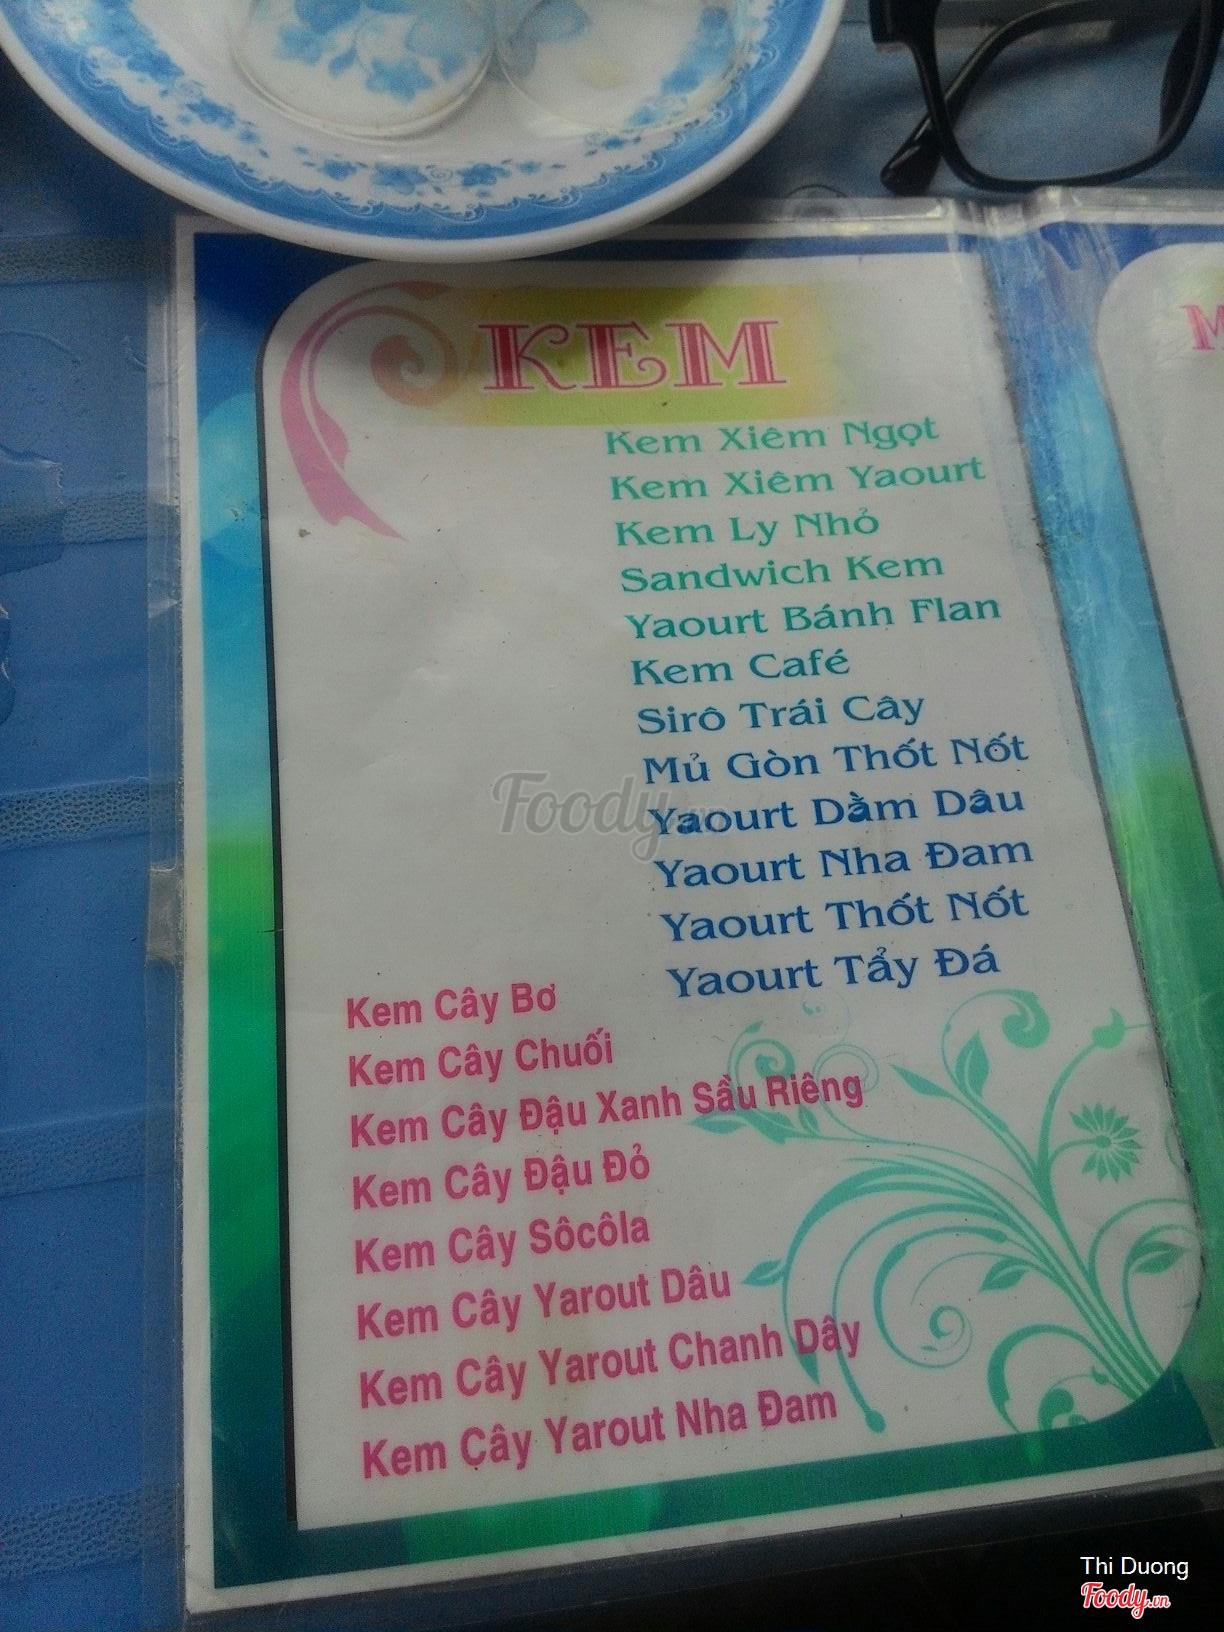 KEM
Kem Xiêm Ngọt
Kem Xiêm Yaourt
Kem Ly Nhỏ
Sandwich Kem
Yaourt Bánh Flan
Kem Café
Sirô Trái Cây
Mủ Gòn Thốt Nốt
Yaourt Dằm Dâu
Yaourt Nha Đam
Yaourt Thốt Nốt
Yaourt Tẩy Đá
Kem Cây Bơ
Kem Cây Chuối
Kem Cây Đậu Xanh Sầu Riêng
Kem Cây Đậu Đỏ
Kem Cây Sôcôla
Kem Cây Yarout Dâu
Kem Cây Yarout Chanh Dây
Kem Cây Yarout Nha Đam
M
Foody.vn
Thi Duong
Foody.vn